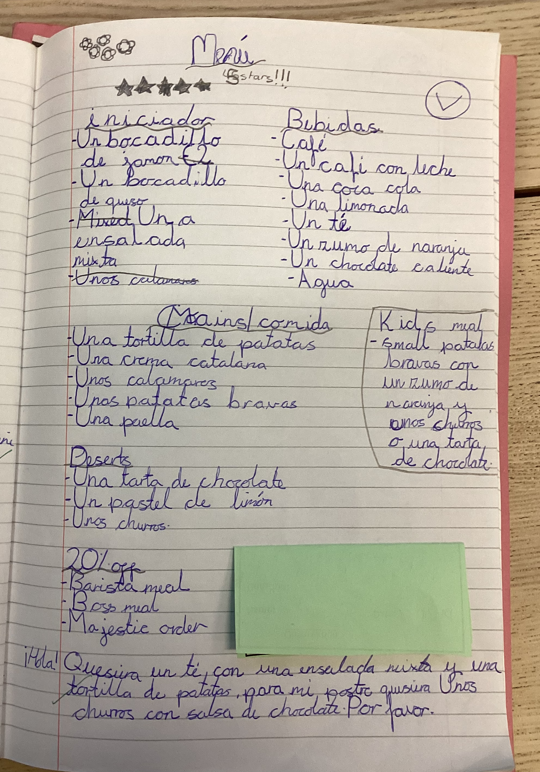 Menú
5 stars!!!
iniciador
-Un bocadillo
de jamon
-Un bocadillo
de queso
-Mixed Una
ensalada
mixta
-Unos calamares
Bebidas
-Café
-Un café con leche
-Una coca cola
-Una limonada
-Un té
-Un zumo de naranja
-Un chocolate caliente
-Agua
Mains/comida
-Una tortilla de patatas
-Una crema catalana
-Unos calamares
-Unas patatas bravas
-Una paella
Kids meal
-small patatas
bravas con
un zumo de
naranja y
unos churros
o una tarta
de chocolate.
Deserts
-Una tarta de chocolate
-Un pastel de limón
-Unos churros.
20% off
-Barista meal
-Boss meal
-Majestic order
¡Hola! Quesiira un té, con una ensalada mixta y una
tortilla de patatas, para mi postre quesiira Unos
churros con salsa de chocolate. Por favor.